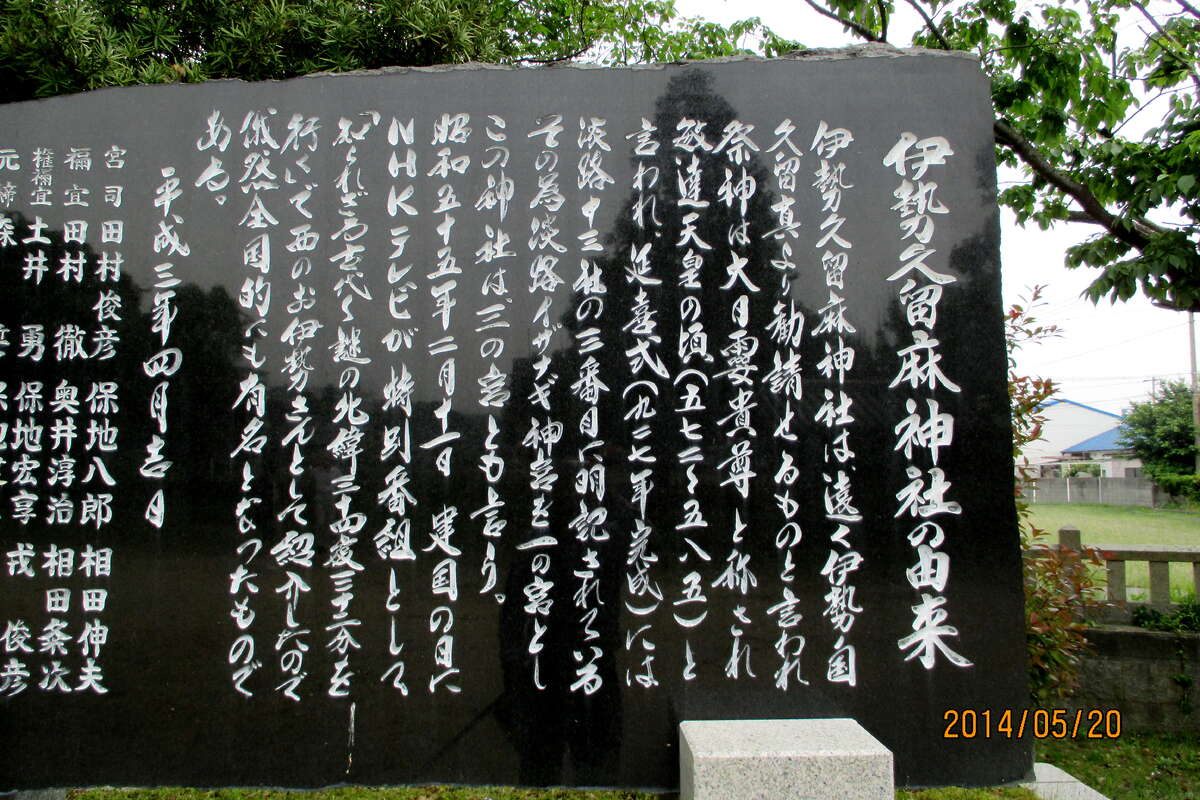 伊勢久留麻神社の由来
伊勢久留麻神社は、遠く伊勢国
久留真より勧請せるものと言われ
祭神は大日孁貴尊と称され
敏達天皇の頃(五七二〜五八五)と
言われ、延喜式(九二七年完成)には
淡路十三社の三番目に明記されている
その為淡路イザナギ神宮を一の宮とし
この神社は、三の宮とも言う。
昭和五十五年二月十一日 建国の日に
NHKテレビが特別番組として
「知られざる古代〜謎の北緯三十四度三十二分を
行く」で西のお伊勢さんとして紹介したので
俄然全国的にも有名となったもので
ある。
平成三年四月吉日
宮司 田村俊彦 保地八郎 相田伸夫
禰宜 田村 徹 奥井淳治 相田粂次
権禰宜 土井 勇 保地宏享 戎 俊彦
元 森
2014/05/20